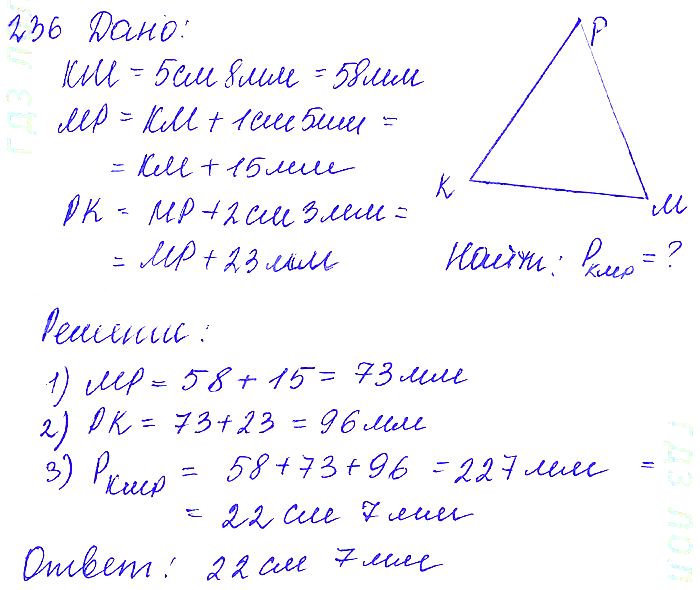 236 Дано:
КМ = 5см 8мм = 58мм
МР = КМ + 1см 5мм =
= КМ + 15мм
РК = МР + 2см 3мм =
= МР + 23мм
Р
К
М
Найти: Р кмр = ?
Решение:
1) МР = 58 + 15 = 73мм
2) РК = 73 + 23 = 96мм
3) Р кмр = 58 + 73 + 96 = 227мм =
= 22см 7мм
Ответ: 22см 7мм